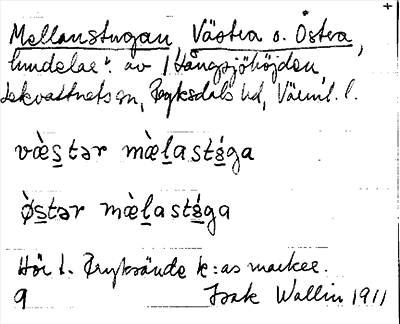 Mellanstugan, Västra o. Östra,
lindelar: av 1 Hångsjöhöjden,
Lekvattnets sn, Fryksdals hd, Värml. l.
væ̀s̲tər mæ̀l̲asté̲ga
ø̀s̲tər mæ̀l̲asté̲ga
Hör t. Fryksände k:as marker.
9 Isak Wallin 1911